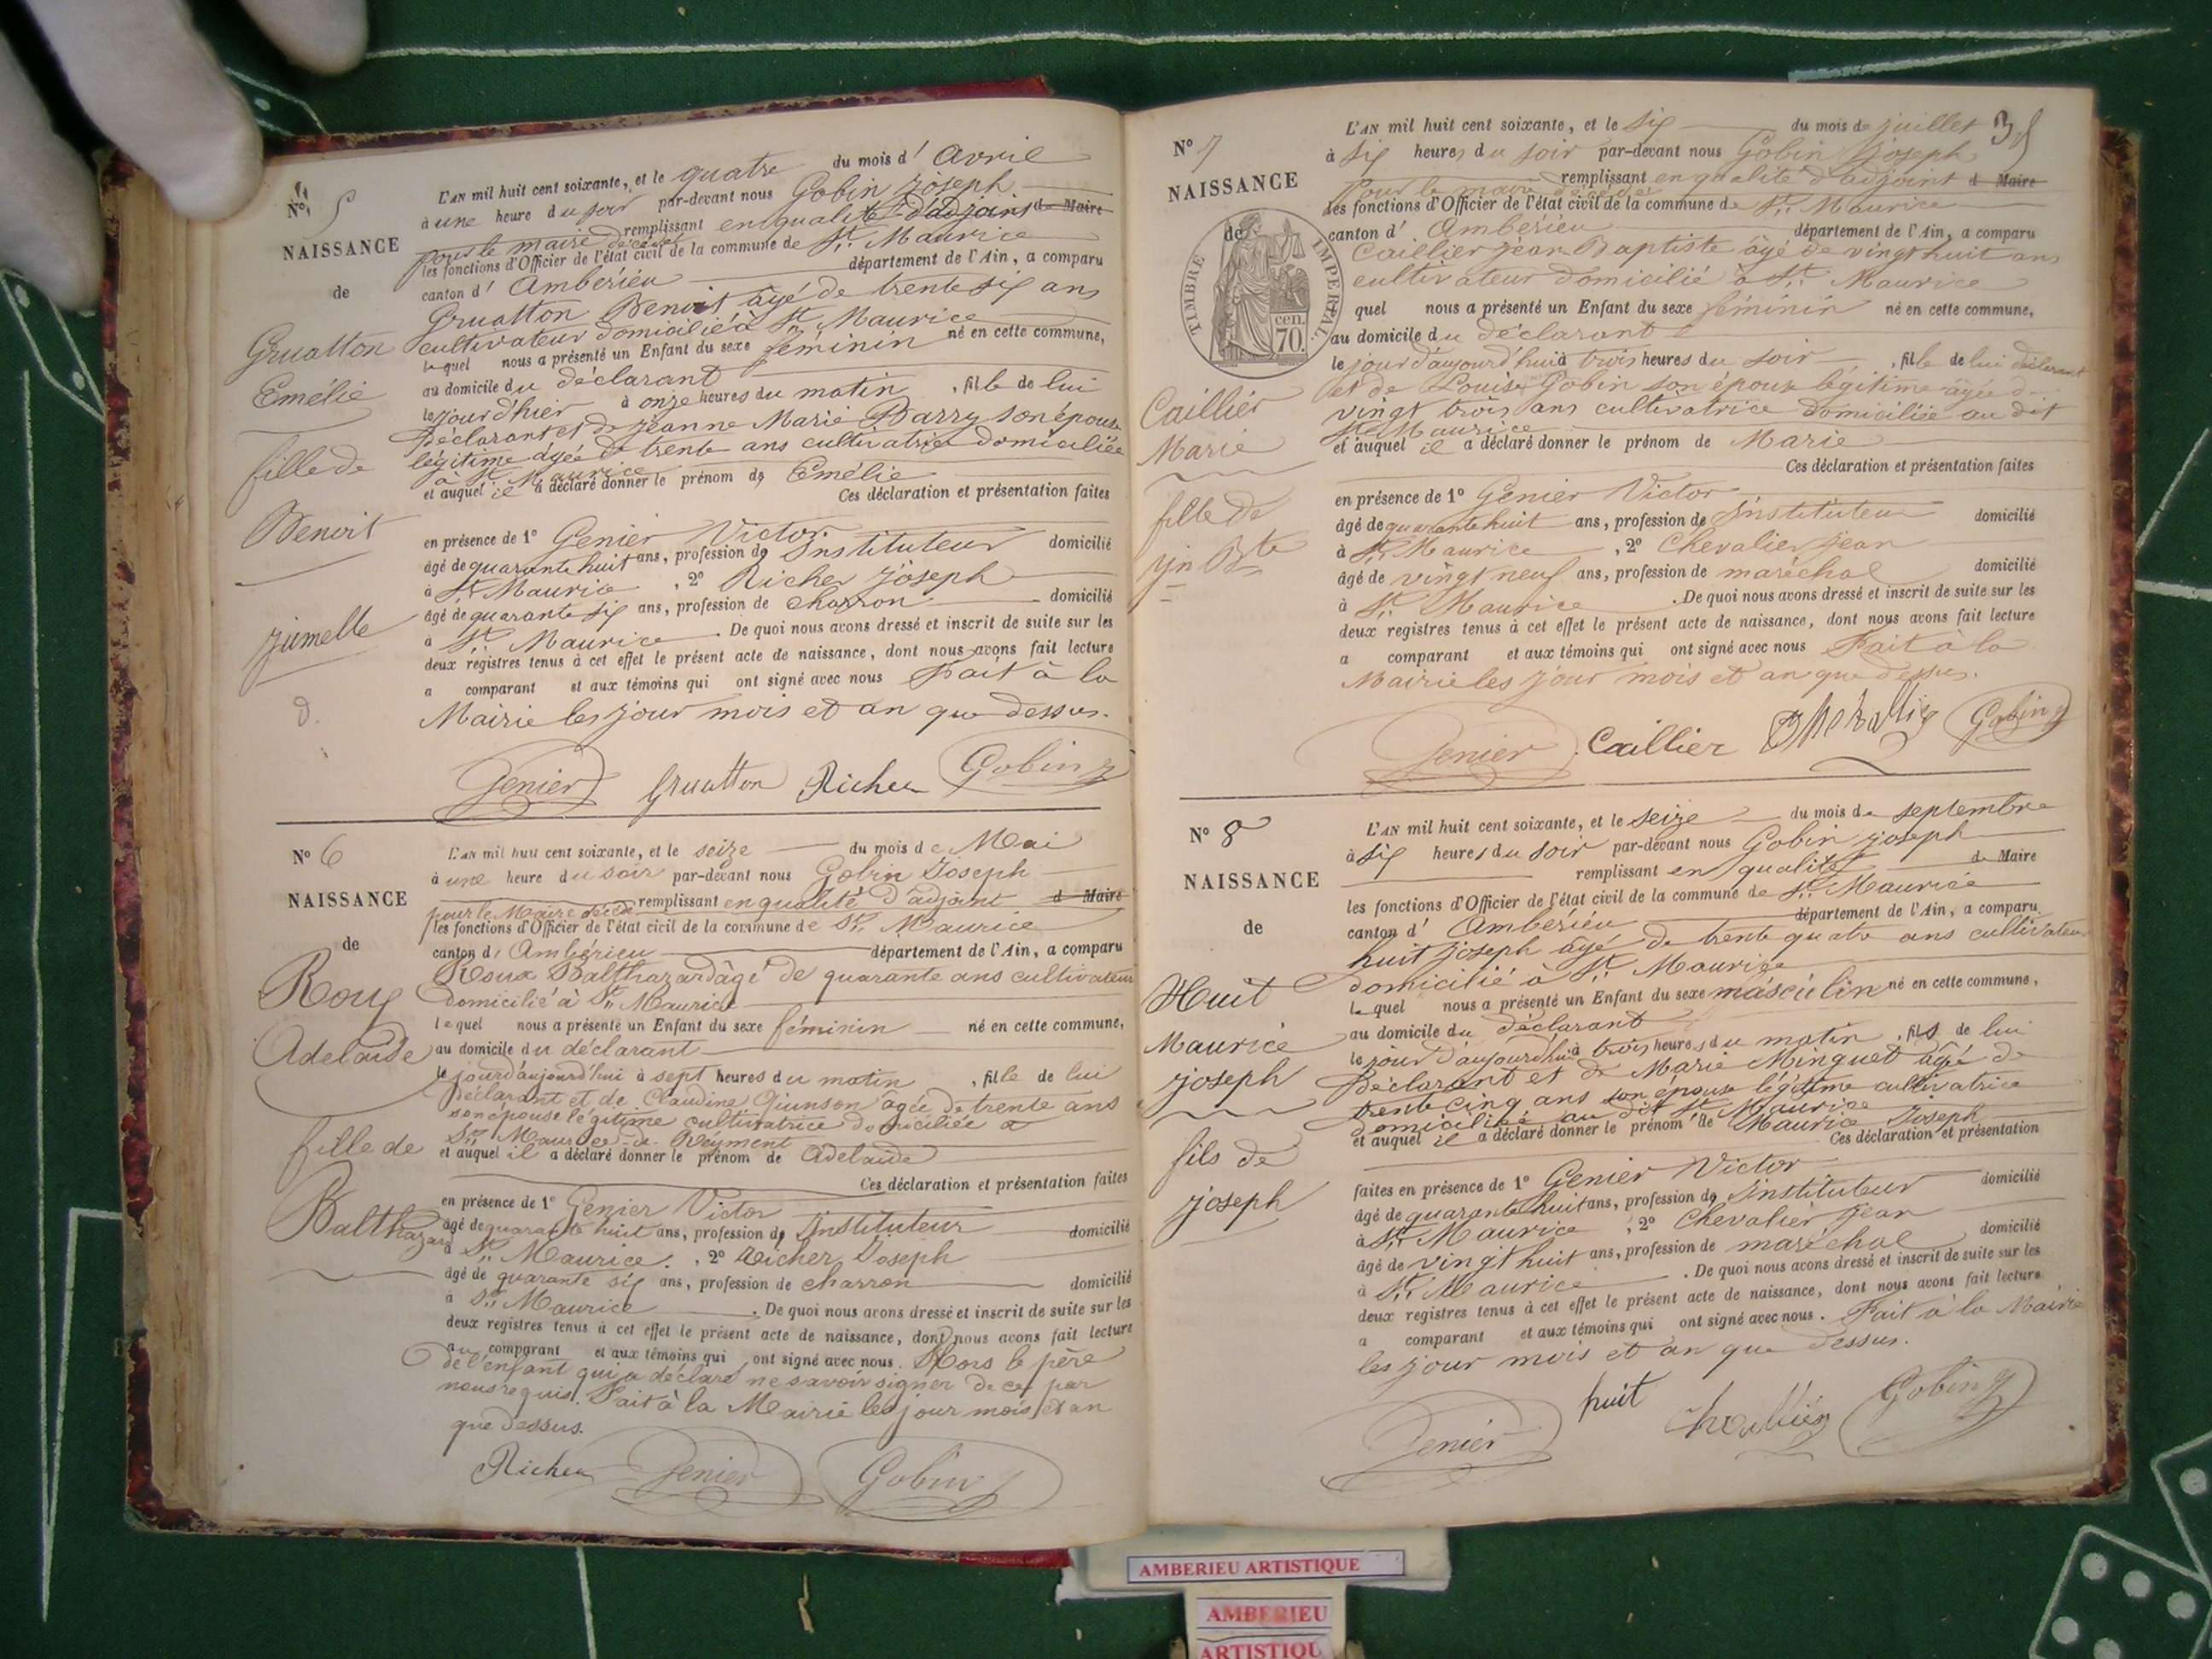 N° 5
NAISSANCE
de
Gruatton
Emélie
fille de
Benoit
jumelle
d.
L'AN mil huit cent soixante, et le quatre du mois d' Avril
à une heure du soir par-devant nous Gobin Joseph
pour le maire décédé remplissant en qualité d'adjoint de Maire
les fonctions d'Officier de l'état civil de la commune de St. Maurice
canton d' Ambérieu département de l'Ain, a comparu
Gruatton Benoit âgé de trente six ans
cultivateur domicilié à St. Maurice
lequel nous a présenté un Enfant du sexe féminin né en cette commune,
au domicile du déclarant
le jour d'hier à onze heures du matin, fille de lui
déclarant et de Jeanne Marie Barry son épouse
légitime âgée de trente ans cultivatrice domiciliée
à St. Maurice
et auquel il a déclaré donner le prénom de Emélie
Ces déclaration et présentation faites
en présence de 1° Genier Victor
âgé de quarante huit ans, profession de Instituteur domicilié
à St. Maurice, 2° Richer Joseph
âgé de quarante six ans, profession de charron domicilié
à St. Maurice. De quoi nous avons dressé et inscrit de suite sur les
deux registres tenus à cet effet le présent acte de naissance, dont nous avons fait lecture
a comparant et aux témoins qui ont signé avec nous Fait à la
Mairie les jour mois et an que dessus.
Genier Gruatton Richer Gobin J
N° 6
NAISSANCE
de
Roux
Adelaide
fille de
Balthazard
L'AN mil huit cent soixante, et le seize du mois de Mai
à une heure du soir par-devant nous Gobin Joseph
pour le Maire décédé remplissant en qualité d'adjoint d Maire
les fonctions d'Officier de l'état civil de la commune de St. Maurice
canton d' Ambérieu département de l'Ain, a comparu
Roux Balthazard âgé de quarante ans cultivateur
domicilié à St. Maurice
lequel nous a présenté un Enfant du sexe féminin né en cette commune,
au domicile du déclarant
le jour d'aujourd'hui à sept heures du matin, fille de lui
déclarant et de Claudine âgée de trente ans
son épouse légitime cultivatrice domiciliée à
St. Maurice de Rémens
et auquel il a déclaré donner le prénom de Adelaide
Ces déclaration et présentation faites
en présence de 1° Genier Victor
âgé de quarante huit ans, profession de Instituteur domicilié
à St. Maurice. , 2° Richer Joseph
âgé de quarante six ans, profession de charron domicilié
à St. Maurice. De quoi nous avons dressé et inscrit de suite sur les
deux registres tenus à cet effet le présent acte de naissance, dont nous avons fait lecture
au comparant et aux témoins qui ont signé avec nous. Hors le père
de l'enfant qui a déclaré ne savoir signer de ce par
nous requis. Fait à la Mairie les jour mois et an
que dessus.
Richer Genier Gobin J
35
N° 7
NAISSANCE
de
TIMBRE IMPERIAL
cen.
70.
Caillier
Marie
fille de
Jn Bte
L'AN mil huit cent soixante, et le six du mois de juillet
à six heures du soir par-devant nous Gobin Joseph
pour le maire décédé remplissant en qualité d'adjoint d Maire
les fonctions d'Officier de l'état civil de la commune de St. Maurice
canton d' Ambérieu département de l'Ain, a comparu
Caillier Jean Baptiste âgé de vingt huit ans
cultivateur domicilié à St. Maurice
quel nous a présenté un Enfant du sexe féminin né en cette commune,
au domicile du déclarant
le jour d'aujourd'hui à trois heures du soir, fille de lui déclarant
et de Louise Gobin son épouse légitime âgée de
vingt trois ans cultivatrice domiciliée au dit
St. Maurice
et auquel il a déclaré donner le prénom de Marie
Ces déclaration et présentation faites
en présence de 1° Genier Victor
âgé de quarante huit ans, profession de Instituteur domicilié
à St. Maurice, 2° Chevalier Jean
âgé de vingt neuf ans, profession de maréchal domicilié
à St. Maurice. De quoi nous avons dressé et inscrit de suite sur les
deux registres tenus à cet effet le présent acte de naissance, dont nous avons fait lecture
a comparant et aux témoins qui ont signé avec nous Fait à la
Mairie les jour mois et an que dessus.
Genier Caillier Gobin J
N° 8
NAISSANCE
de
Huit
Maurice
joseph
fils de
joseph
L'AN mil huit cent soixante, et le seize du mois de septembre
à six heures du soir par-devant nous Gobin joseph
remplissant en qualité de Maire
les fonctions d'Officier de l'état civil de la commune de St. Maurice
canton d' Ambérieu département de l'Ain, a comparu
huit joseph âgé de trente quatre ans cultivateur
domicilié à St. Maurice
lequel nous a présenté un Enfant du sexe masculin né en cette commune,
au domicile du déclarant
le jour d'aujourd'hui à trois heures du matin, fils de lui
déclarant et de Marie Minguet âgé de
trente cinq ans son épouse légitime cultivatrice
domiciliée au dit St. Maurice
et auquel il a déclaré donner le prénom de Maurice Joseph
Ces déclaration et présentation
faites en présence de 1° Genier Victor
âgé de quarante huit ans, profession de Instituteur domicilié
à St. Maurice, 2° Chevalier Jean
âgé de vingt huit ans, profession de maréchal domicilié
à St. Maurice. De quoi nous avons dressé et inscrit de suite sur les
deux registres tenus à cet effet le présent acte de naissance, dont nous avons fait lecture
a comparant et aux témoins qui ont signé avec nous. Fait à la Mairie
les jour mois et an que dessus.
Genier huit Gobin J
AMBERIEU ARTISTIQUE
AMBERIEU
ARTISTIQU